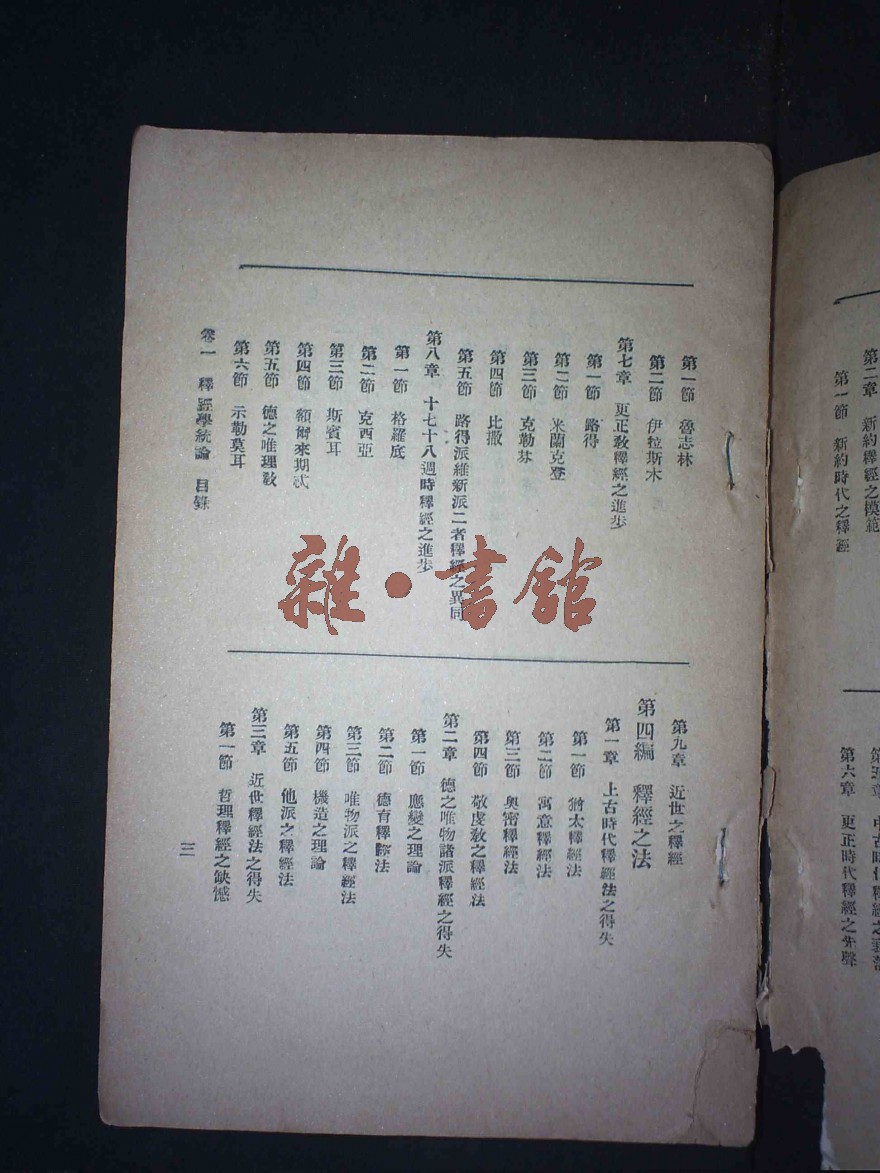 第二章 新約釋經之模範
第一節 新約時代之釋經
第六章 更正時代釋經之先聲
第一節 魯志林
第二節 伊拉斯木
第七章 更正教釋經之進步
第一節 路得
第二節 米蘭克登
第三節 克勒芬
第四節 比撒
第五節 路得派維新派二者釋經之異同
第八章 十七十八週時釋經之進步
第一節 格羅底
第二節 克西亞
第三節 斯賓耳
第四節 額爾來期忒
第五節 德之唯理教
第六節 示勒莫耳
卷一 釋經學統論 目錄
第九章 近世之釋經
第四編 釋經之法
第一章 上古時代釋經法之得失
第一節 猶太釋經法
第二節 寓意釋經法
第三節 奧密釋經法
第四節 敬虔教之釋經法
第二章 德之唯物諸派釋經之得失
第一節 應變之理論
第二節 德育釋經法
第三節 唯物派之釋經法
第四節 機造之理論
第五節 他派之釋經法
第三章 近世釋經法之得失
第一節 哲理釋經之缺憾
三
雜·書館